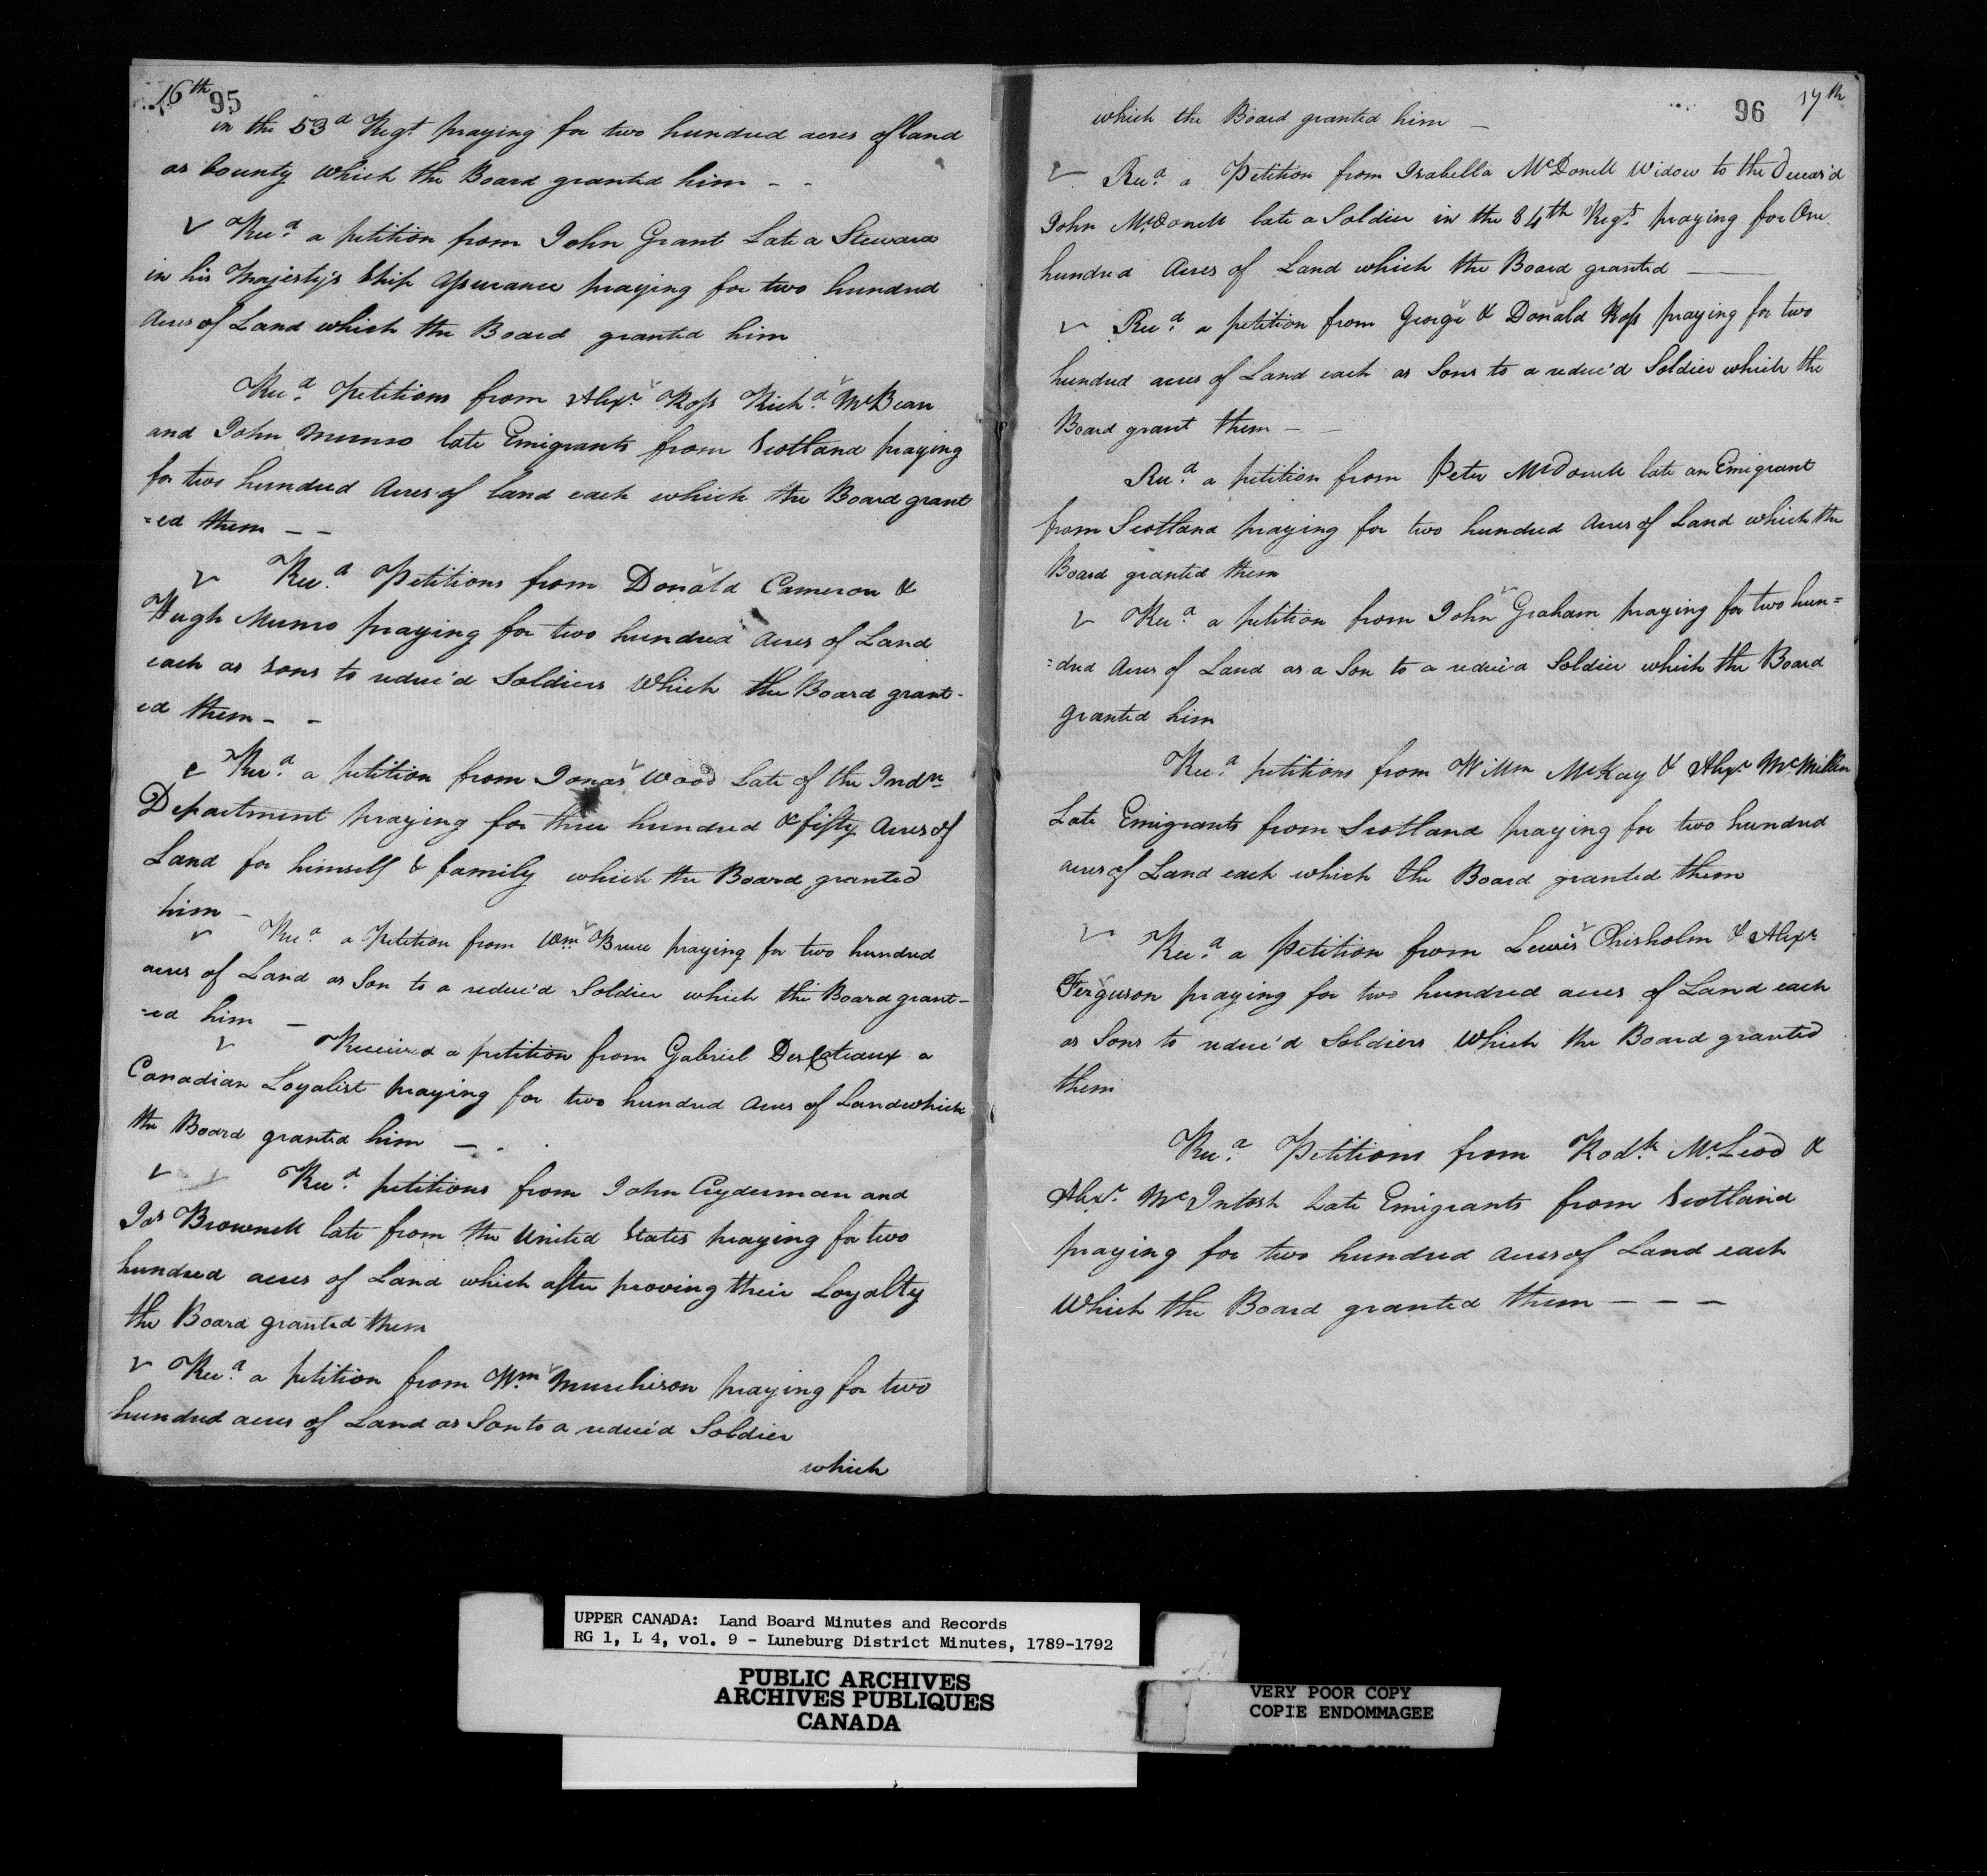 16th 95
in the 53d Regt praying for two hundred acres of land
as bounty which the Board granted him - -
Recd. a petition from John Grant Late a Steward
in his Majesty's Ship Assurance praying for two hundred
Acres of Land which the Board granted him
Recd. Petitions from Alexr. Ross Richd. McBean
and John Munro late Emigrants from Scotland praying
for two hundred Acres of land each which the Board grant
=ed them - -
Recd. Petitions from Donald Cameron &
Hugh Munro praying for two hundred Acres of Land
each as sons to reduc'd Soldiers Which the Board grant-
ed them - -
Recd. a petition from Jonas Wood Late of the Indn
Department praying for three hundred & fifty Acres of
Land for himself & family which the Board granted
him -
Recd. a Petition from Wm. Bruce praying for two hundred
acres of Land as Son to a reduc'd Soldier which the Board grant-
=ed him -
Received a petition from Gabriel Desloteaux a
Canadian Loyalist praying for two hundred Acres of Land which
the Board granted him - -
Recd. petitions from John Cryderman and
Jas Brownell late from the United States praying for two
hundred acres of Land which after proving their Loyalty
the Board granted them
Recd. a petition from Wm. Murchison praying for two
hundred acres of Land as Son to a reduc'd Soldier
which
96 17th
which the Board granted him -
Recd. a Petition from Isabella McDonell Widow to the Deceas'd
John McDonell late a Soldier in the 84th Regt. praying for One
hundred Acres of Land which the Board granted -
Recd. a petition from George & Donald Ross praying for two
hundred acres of Land each as Sons to a reduc'd Soldier which the
Board grant them - -
Recd. a petition from Peter McDonell late an Emigrant
from Scotland praying for two hundred Acres of Land which the
Board granted them
Recd. a petition from John Graham praying for two hun=
=dred Acres of Land as a Son to a reduc'd Soldier which the Board
granted him
Recd. petitions from Willm McKay & Alexr. McMillin
Late Emigrants from Scotland praying for two hundred
acres of Land each which the Board granted them
Recd. a Petition from Lewis Chisholm & Alexr.
Ferguson praying for two hundred acres of Land each
as Sons to reduc'd Soldiers Which the Board granted
them
Recd. Petitions from Rodk. McLeod &
Alexr. McIntosh Late Emigrants from Scotland
praying for two hundred acres of Land each
Which the Board granted them - - -
UPPER CANADA: Land Board Minutes and Records
RG 1, L 4, vol. 9 - Luneburg District Minutes, 1789-1792
PUBLIC ARCHIVES
ARCHIVES PUBLIQUES
CANADA
VERY POOR COPY
COPIE ENDOMMAGEE